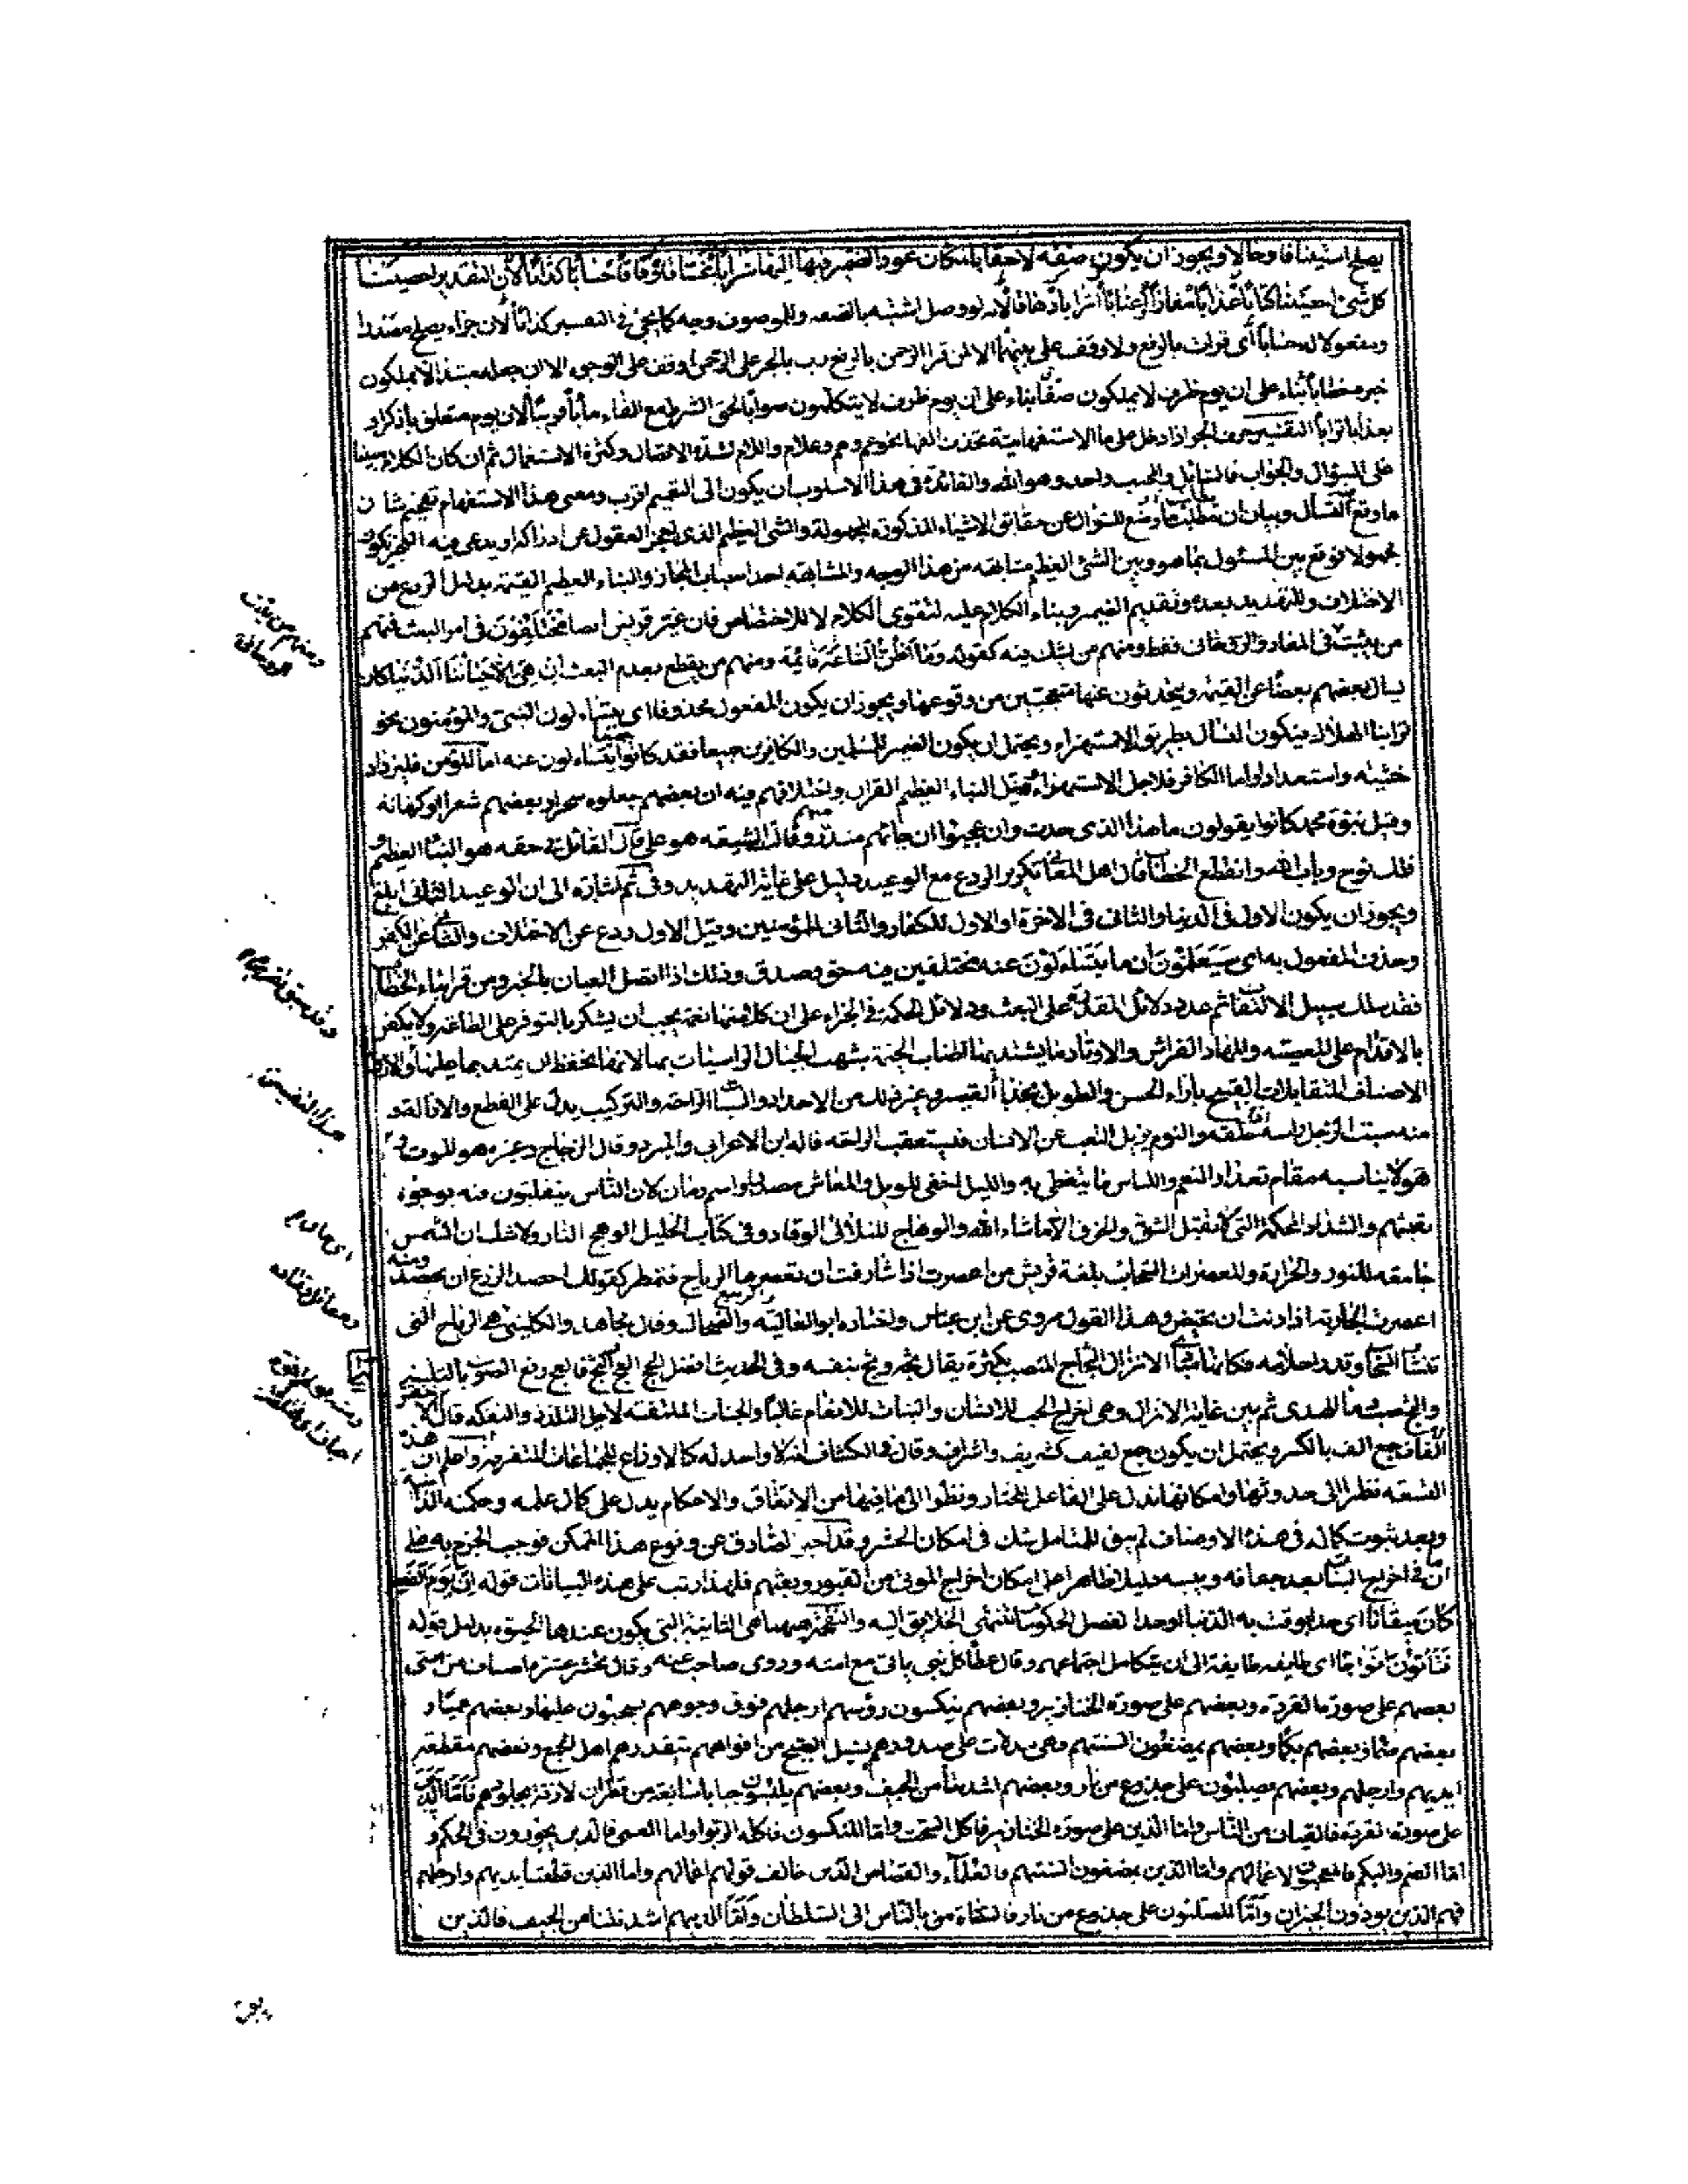 يصلح استينافا وحالا ويجوز ان يكون صفة لاحقابا لمكان عود الضمير فيها اليها شرابا غساقا وفاقا حسابا كذابا لان التقدير احصينا
كل شئ احصيناه كتابا عذابا مفازا اعنابا اترابا دهاقا لانه لو وصل اشتبه بالصفة وللموصوف وجه كما يجئ في التفسير كذابا لان جزاء يصلح مصدرا
ومفعولا له حسابا لمن قرا رب بالرفع ولا وقف على بينهما الا لمن قرا الرحمن بالرفع رب بالجر على الرحمن وقف على الوجهين الا ان جعله مبتدا لا يملكون
خبره خطابا بناء على ان يوم ظرف لا يملكون صفا بناء على ان يوم ظرف لا يتكلمون صوابا الحق الشرط مع الفاء مابا قريبا لان يوم متعلق باذكر او
بعذابا ترابا التفسير حرف الجر اذا دخل على ما الاستفهامية تحذف الفها نحو عم ومم وعلام والام لشدة الاتصال وكثرة الاستعمال ثم ان كان الكلام مبنيا
على السؤال والجواب فالسائل والمجيب واحد وهو الله والفائدة في هذا الاسلوب ان يكون الى التفهيم اقرب ومعنى هذا الاستفهام تفخيم شان
ما وقع التساؤل وبيان ان وضع للسؤال عن حقائق الاشياء المذكورة المجهولة والشئ العظيم الذي يعجز العقول عن ادراكه او يدعى فيه العجز يكون
مجهولا فوقع بين المسئول بما هو وبين الشئ العظيم مشابهة من هذا الوجه والمشابهة احد اسباب المجاز والنباء العظيم القيمة بدليل الردع عن
الاختلاف والتهديد بعده وتقديم الضمير وبناء الكلام عليه لتقوى الكلام لا للاختصاص فان غير قريش ايضا مختلفون في امر البعث فمنهم
من يثبت في المعاد الروحاني فقط ومنهم من يشك فيه كقوله وما اظن الساعة قائمة ومنهم من يقطع بعدم البعث ان هي الا حياتنا الدنيا كان
يسال بعضهم بعضا عن القيمة ويتحدثون عنها متعجبين من وقوعها ويجوز ان يكون المفعول محذوفا اي يتساءلون النبي والمؤمنون نحو
تراينا الهلال فيكون التساؤل بطريق الاستهزاء ويحتمل ان يكون الضمير للمسلمين والكافرين جميعا فقد كانوا يتساءلون عنه اما المؤمن فليزداد
خشية واستعدادا واما الكافر فلاجل الاستهزاء وقيل النباء العظيم القران واختلافهم فيه ان بعضهم جعلوه سحرا وبعضهم شعرا او كهانة
وقيل نبوة محمد كانوا يقولون ما هذا الذي حدث وان عجبوا ان جائهم منذر منهم وقالت الشيعة هو علي قال القائل في حقه هو النبا العظيم
فلك نوح وباب الله وانقطع الخطاب قال اهل المعاني تكرير الردع مع الوعيد دليل على غاية التهديد وفي ثم اشارة الى ان الوعيد الثاني ابلغ
ويجوز ان يكون الاول في الدنيا والثاني في الاخرة او الاول للكفار والثاني للمؤمنين وقيل الاول ردع عن الاختلاف والثاني عن الكفر
وحذف المفعول به اي سيعلمون ان ما يتساءلون عنه مختلفين فيه حق وصدق وذلك اذا اتصل العيان بالخبر ومن قرا بتاء الخطاب
فقد سلك سبيل الالتفات ثم عدد دلائل القدرة على البعث ودلائل الحكمة في الجزاء على ان كلا منها نعمة يجب ان يشكر بالتوفر على الطاعة ولا يكفر
بالاقدام على المعصية والمهاد الفراش والاوتاد ما يشد بها اطناب الخيمة شبهت الجبال الراسيات بها لانها تحفظ ان يمتد بما عليها والازواج
الاصناف المتقابلات القبيح بازاء الحسن والطويل بحذاء القصير وغير ذلك من الاضداد والسبات الراحة والتركيب يدل على القطع والازالة
منه سبت الرجل راسه اذا حلقه والنوم يزيل التعب عن الانسان فيستعقب الراحة قاله ابن الاعرابي والمبرد وقال الزجاج وغيره هو الموت
هو لا يناسبه مقام تعداد النعم واللباس ما يتغطى به والليل اخفى للويل والمعاش مصدر او اسم زمان كان الناس ينقلبون فيه بوجوه
تعيشهم والشداد المحكمة التي لا تقبل الشق والخرق الا ما شاء الله والوهاج المتلالي الوقاد وفي كتاب الخليل الوهج النار ولا شك ان الشمس
جامعة للنور والحرارة والمعصرات السحائب بلغة قريش من اعصرت اذا شارفت ان تعصرها الرياح فتمطر كقولك احصد الزرع ان يحصد ومنه
اعصرت الجارية اذا دنت ان تحيض وهذا القول مروي عن ابن عباس واختاره ابو العالية والربيع والضحاك وقال مجاهد والكلبي هي الرياح التي
تنشا السحاب وتدر اخلافه فكانها مبدا الانزال والثجاج المنصب بكثرة يقال ثجه وثج بنفسه وفي الحديث افضل الحج العج والثج فالعج رفع الصوت بالتلبية
والثج صب دماء الهدى ثم بين غاية الانزال وهي اخراج الحب للانسان والنبات للانعام غالبا والجنات الملتفة لاجل التلذذ والتفكه قال الاخفش
الفافا جمع الف بالكسر ويحتمل ان يكون جمع لفيف كشريف واشراف وقال في الكشاف انه لا واحد له كالاوزاع للجماعات المتفرقة واعلم ان هذه
التسعة نظرا الى حدوثها وامكانها تدل على الفاعل المختار ونظرا الى ما فيها من الاتقان والاحكام يدل على كمال علمه وحكمته
وبعد ثبوت كماله في هذه الاوصاف لم يبق للمتامل شك في امكان الحشر وقد اخبر الصادق عن وقوع هذا الممكن فوجب الجزم به على
ان في اخراج النبات بعد جفافه ويبسه دليلا ظاهرا على امكان اخراج الموتى من القبور وبعثهم فلهذا رتب على هذه البيانات قوله ان يوم الفصل
كان ميقاتا اي حدا يوقت به الدنيا او حدا لفصل الحكومات تنتهي الخلايق اليه والنفخة ههنا هي الثانية التي يكون عندها الحيوة بدليل قوله
فتاتون افواجا اي طايفة طايفة الى ان يتكامل اجتماعهم وقال عطا كل نبي ياتي مع امته وروى صاحب عينه وقال يحشر عشرة اصناف من امتي
بعضهم على صورة القردة وبعضهم على صورة الخنازير وبعضهم ينكسون رؤسهم ارجلهم فوق وجوههم يسحبون عليها وبعضهم عميا و
بعضهم صما وبعضهم بكما وبعضهم يمضغون السنتهم وهي مدلات على صدورهم يسيل القيح من افواههم يتقذرهم اهل الجمع وبعضهم مقطعة
ايديهم وارجلهم وبعضهم مصلبون على جذوع من نار وبعضهم اشد نتنا من الجيف وبعضهم يلبسون جبابا سابغة من قطران لازقة بجلودهم فاما الذين
على صورة القردة فالقتات من الناس واما الذين على صورة الخنازير فاكل السحت واما المنكسون فاكلة الربوا واما العمى فالذين يجورون في الحكم و
اما الصم والبكم فالمعجبون لاعمالهم واما الذين يمضغون السنتهم فالعلماء والقصاص الذين خالف قولهم اعمالهم واما الذين قطعت ايديهم وارجلهم
فهم الذين يوذون الجيران واما المصلبون على جذوع من نار فالسعاة بالناس الى السلطان واما الذين هم اشد نتنا من الجيف فالذين